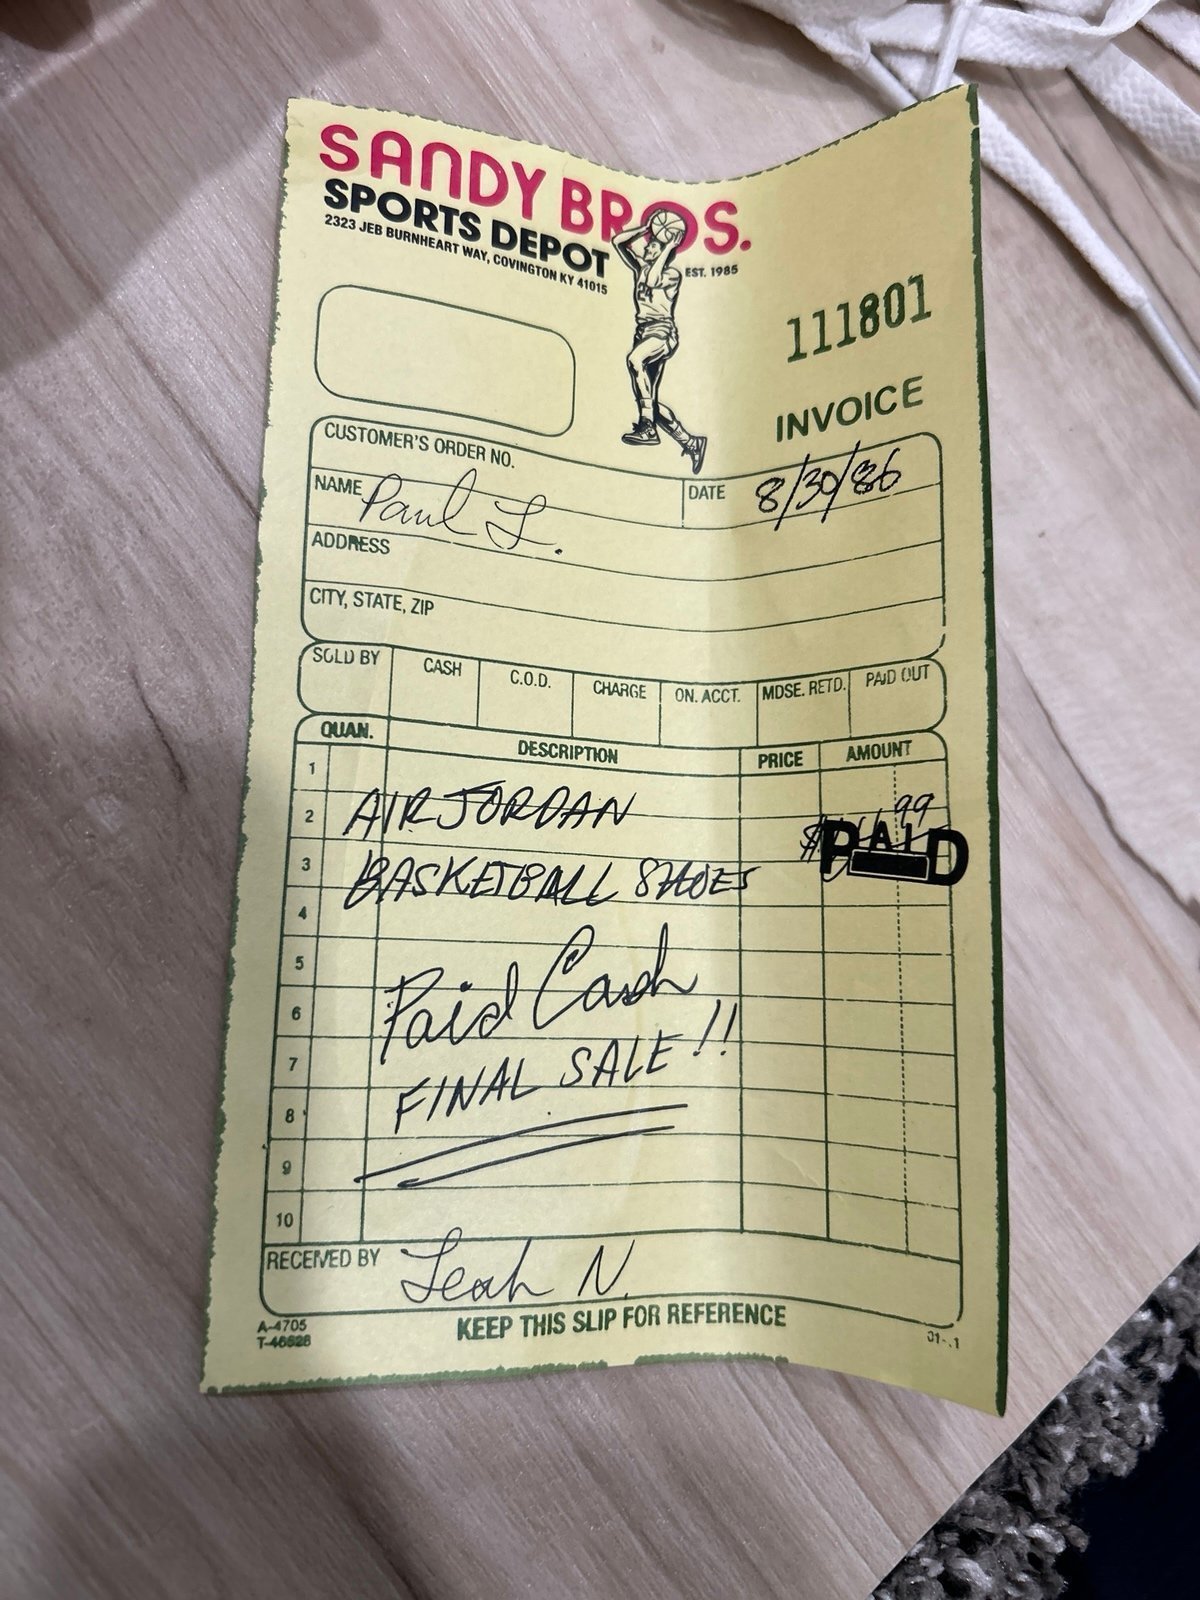 SANDY BROS.
SPORTS DEPOT
2323 JEB BURNHEART WAY, COVINGTON KY 41015
EST. 1985
24
111801
INVOICE
CUSTOMER'S ORDER NO.
NAME Paul L. DATE 8/30/86
ADDRESS
CITY, STATE, ZIP
SOLD BY CASH C.O.D. CHARGE ON. ACCT. MDSE. RETD. PAID OUT
QUAN. DESCRIPTION PRICE AMOUNT
1
2 AIR JORDAN 99
PAID
3 BASKETBALL SHOES
4
5
6 Paid Cash
7 FINAL SALE!!
8
9
10
RECEIVED BY Leah N.
KEEP THIS SLIP FOR REFERENCE
A-4705